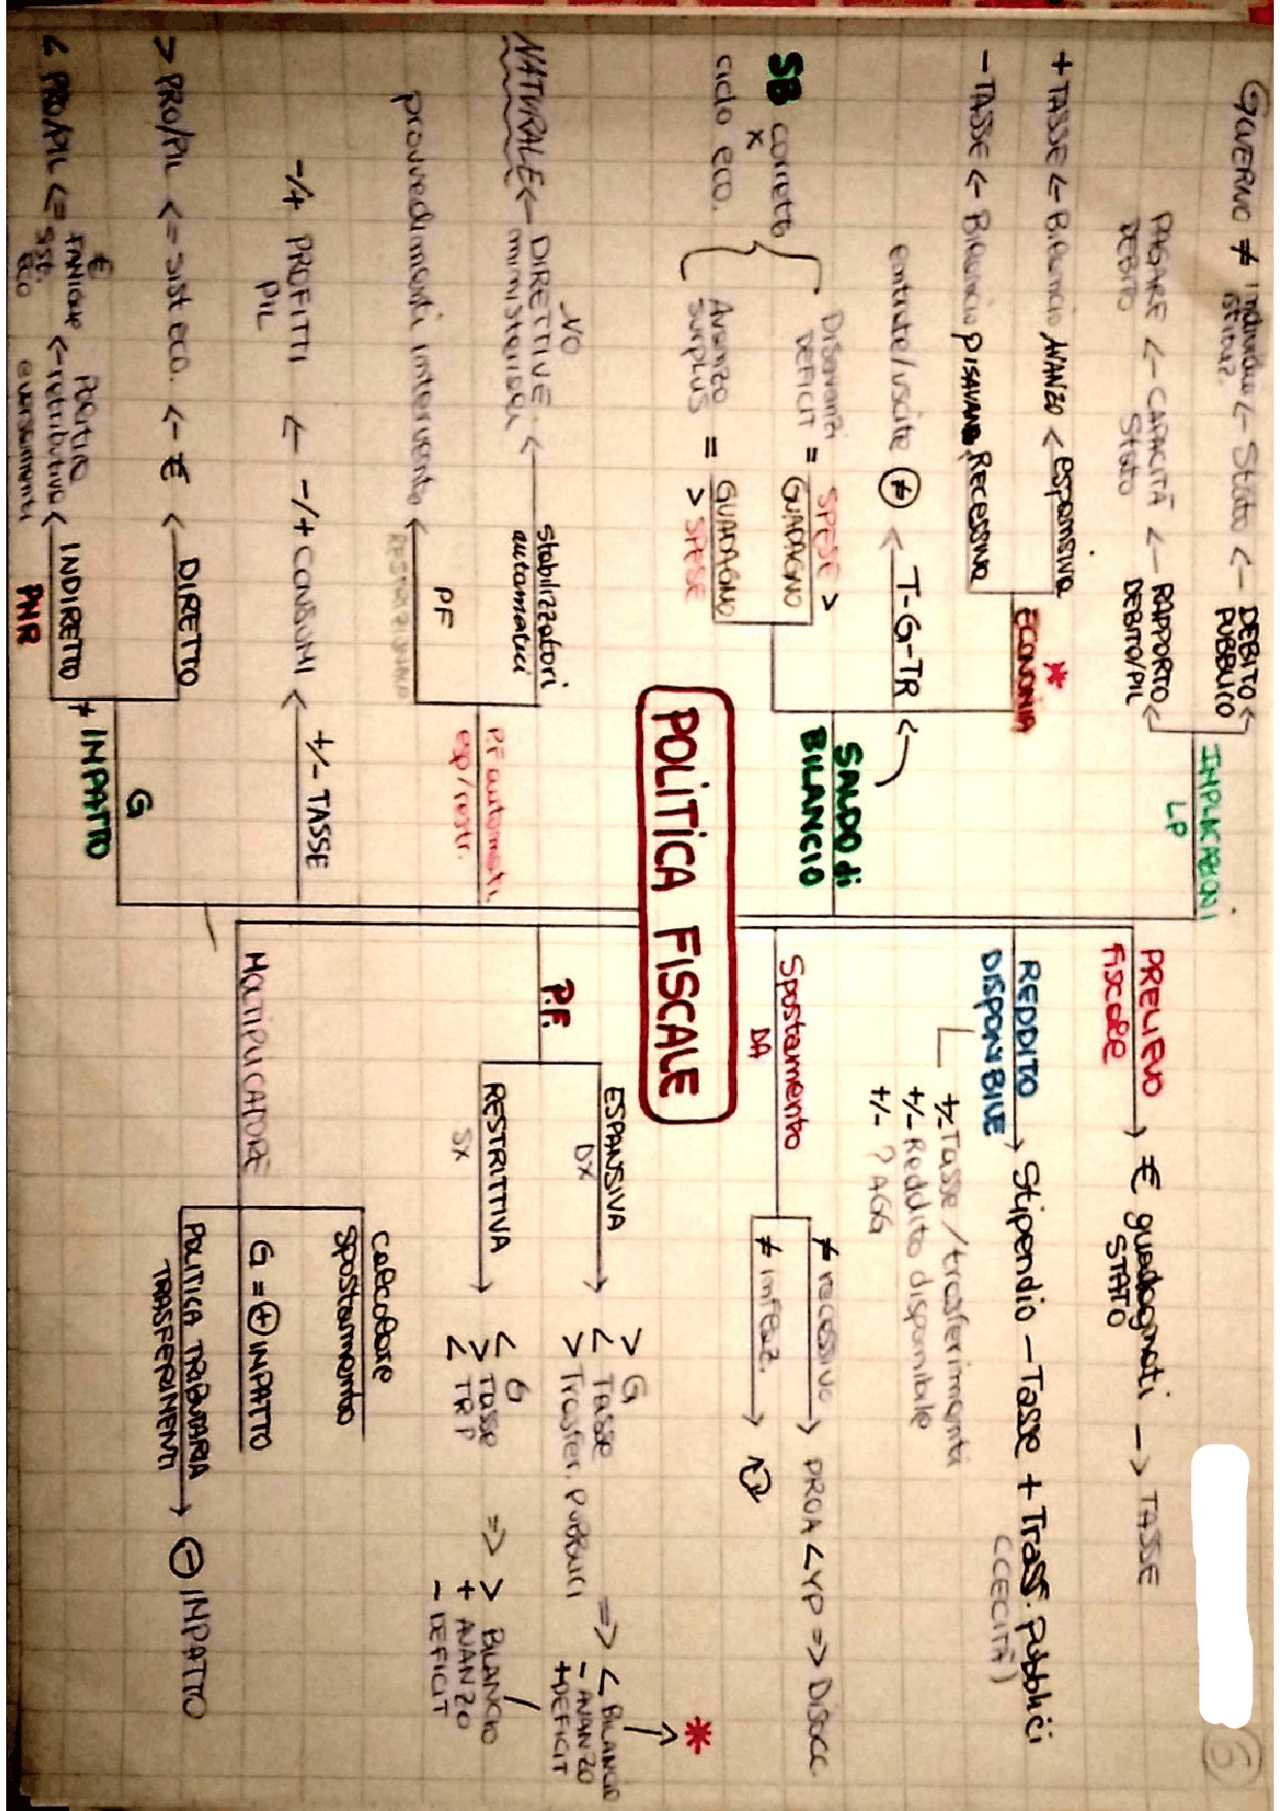 6
POLITICA FISCALE
PRELIEVO
fiscale
€ guadagnati -> TASSE
STATO
REDDITO
DISPONIBILE
Stipendio - Tasse + Trasf. pubblici
CCECITÀ)
+/- Tasse / trasferimenti
+/- Reddito disponibile
+/- ? AGG
Spostamento
DA
≠ recessivo
PROA < YP => DISOCC
≠ inflaz.
P.F.
ESPANSIVA
DX
> G
< Tasse
> Trasfer. pubblici
=> < BILANCIO
- AVANZO
+ DEFICIT
*
RESTRITTIVA
SX
< G
> Tasse
< TRP
=> > BILANCIO
+ AVANZO
- DEFICIT
MOLTIPLICATORE
calcolare
spostamento
G = + INPATTO
POLITICA TRIBUTARIA
TRASFERIMENTI
- INPATTO
IMPLICAZIONI
LP
DEBITO
PUBBLICO
<- Stato <- individui
istituz.
≠ GOVERNO
RAPPORTO
DEBITO/PIL
<- CAPACITÀ
Stato
<- PAGARE
DEBITO
SALDO di
BILANCIO
*
ECONOMIA
espansiva
<- Bilancio AVANZO
<- + TASSE
Recessiva
Bilancio DISAVANZO
<- - TASSE
T-G-TR
<- ≠ entrate/uscite
SB corretto
x
ciclo eco.
Disavanzi
DEFICIT
= SPESE >
GUADAGNO
Avanzo
SURPLUS
= GUADAGNO
> SPESE
PF automati.
esp/restr.
stabilizzatori
automatici
<- DIRETTIVE
ministeriali
NO
<- NATURALE
PF
<- provvedimenti intervento
+/- TASSE
<- -/+ CONSUMI
<- -/+ PROFITTI
PIL
G
≠ INPATTO
DIRETTO
<- € <- sist eco. <= > PRO/PIL
INDIRETTO
PNR
<- retributiva
<- € FAMIGLIE
SIST.
ECO
<= < PRO/PIL